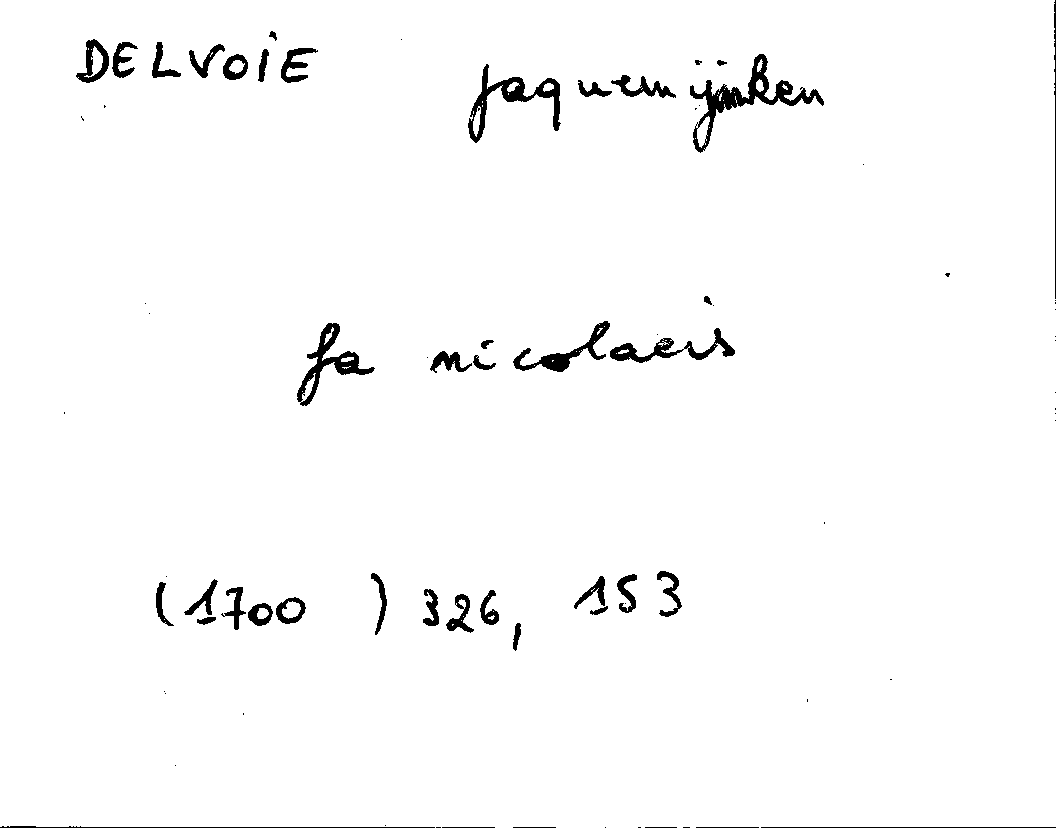 DELVOIE jaquemijnken
fa nicolaeis
(1700 ) 326, 153